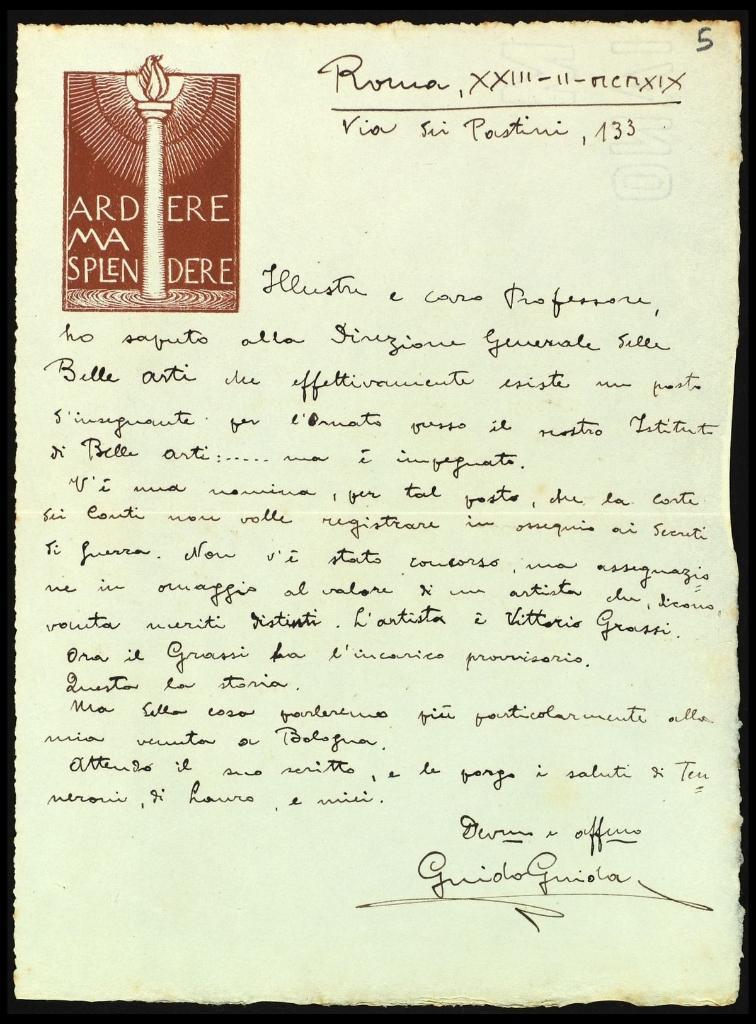 5
Roma, XXIII-II-MCMXIX
Via dei Pastini, 133
ARDERE
MA
SPLENDERE
Illustre e caro Professore,
ho saputo alla Direzione Generale delle
Belle arti che effettivamente esiste un posto
d'insegnante per l'Ornato presso il nostro Istituto
di Belle arti:..... ma è impegnato.
V'è una nomina, per tal posto, che la corte
dei Conti non volle registrare in ossequio ai decreti
di guerra. Non v'è stato concorso, ma assegnazio
ne in omaggio al valore di un artista che, dicono,
vanta meriti distinti. L'artista è Vittorio Grassi.
Ora il Grassi ha l'incarico provvisorio.
Questa la storia.
Ma della cosa parleremo più particolarmente alla
mia venuta a Bologna.
Attendo il suo scritto, e le porgo i saluti di Ten=
neroni, di Lauro, e miei.
Devmo e affmo
Guido Guida